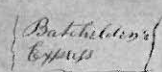 Batchelder's
Express